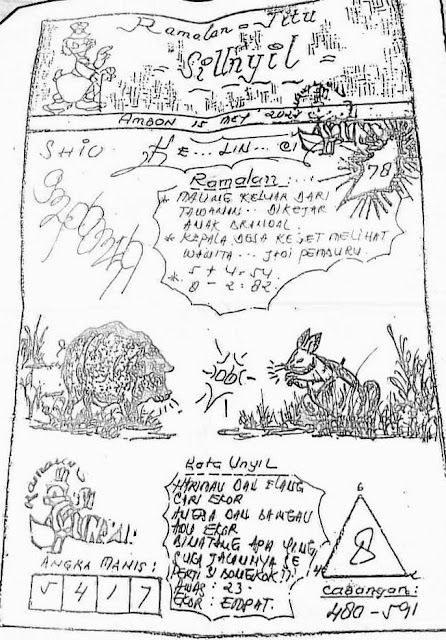 Ramalan = Jitu
Si Unyil
AMBON 15 MEY
SHIO
HE... LIN...
78
Ramalan:
* MAUNG KELUAR DARI
TAWANAN... DIKEJAR
ANAK BRANDAL.
* KEPALA DESA KEGET MELIHAT
WANITA... JADI PEMBURU.
* 5 + 4 = 54
8 - 2 : 82
06
Kata UNYIL
HARIMAU DAN ELANG
CARI EKOR
ANGSA DAN BANGAU
ADU EKOR
BINATANG APA YANG
SUKA JALANNYA SE
PERTI SI BONGKOK
AWAS : 23
EKOR : EMPAT.
ANGKA MANIS:
5 4 1 7
6
8
Cabangan:
480 - 591